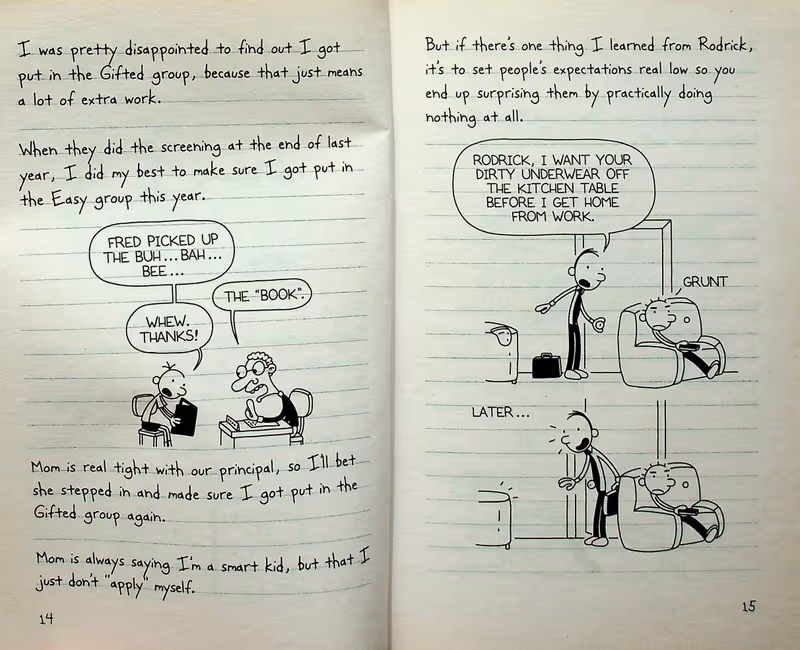 I was pretty disappointed to find out I got
put in the Gifted group, because that just means
a lot of extra work.
When they did the screening at the end of last
year, I did my best to make sure I got put in
the Easy group this year.
FRED PICKED UP
THE BUH...BAH...
BEE...
THE "BOOK".
WHEW.
THANKS!
Mom is real tight with our principal, so I'll bet
she stepped in and made sure I got put in the
Gifted group again.
Mom is always saying I'm a smart kid, but that I
just don't "apply" myself.
14
But if there's one thing I learned from Rodrick,
it's to set people's expectations real low so you
end up surprising them by practically doing
nothing at all.
RODRICK, I WANT YOUR
DIRTY UNDERWEAR OFF
THE KITCHEN TABLE
BEFORE I GET HOME
FROM WORK.
GRUNT
LATER...
15